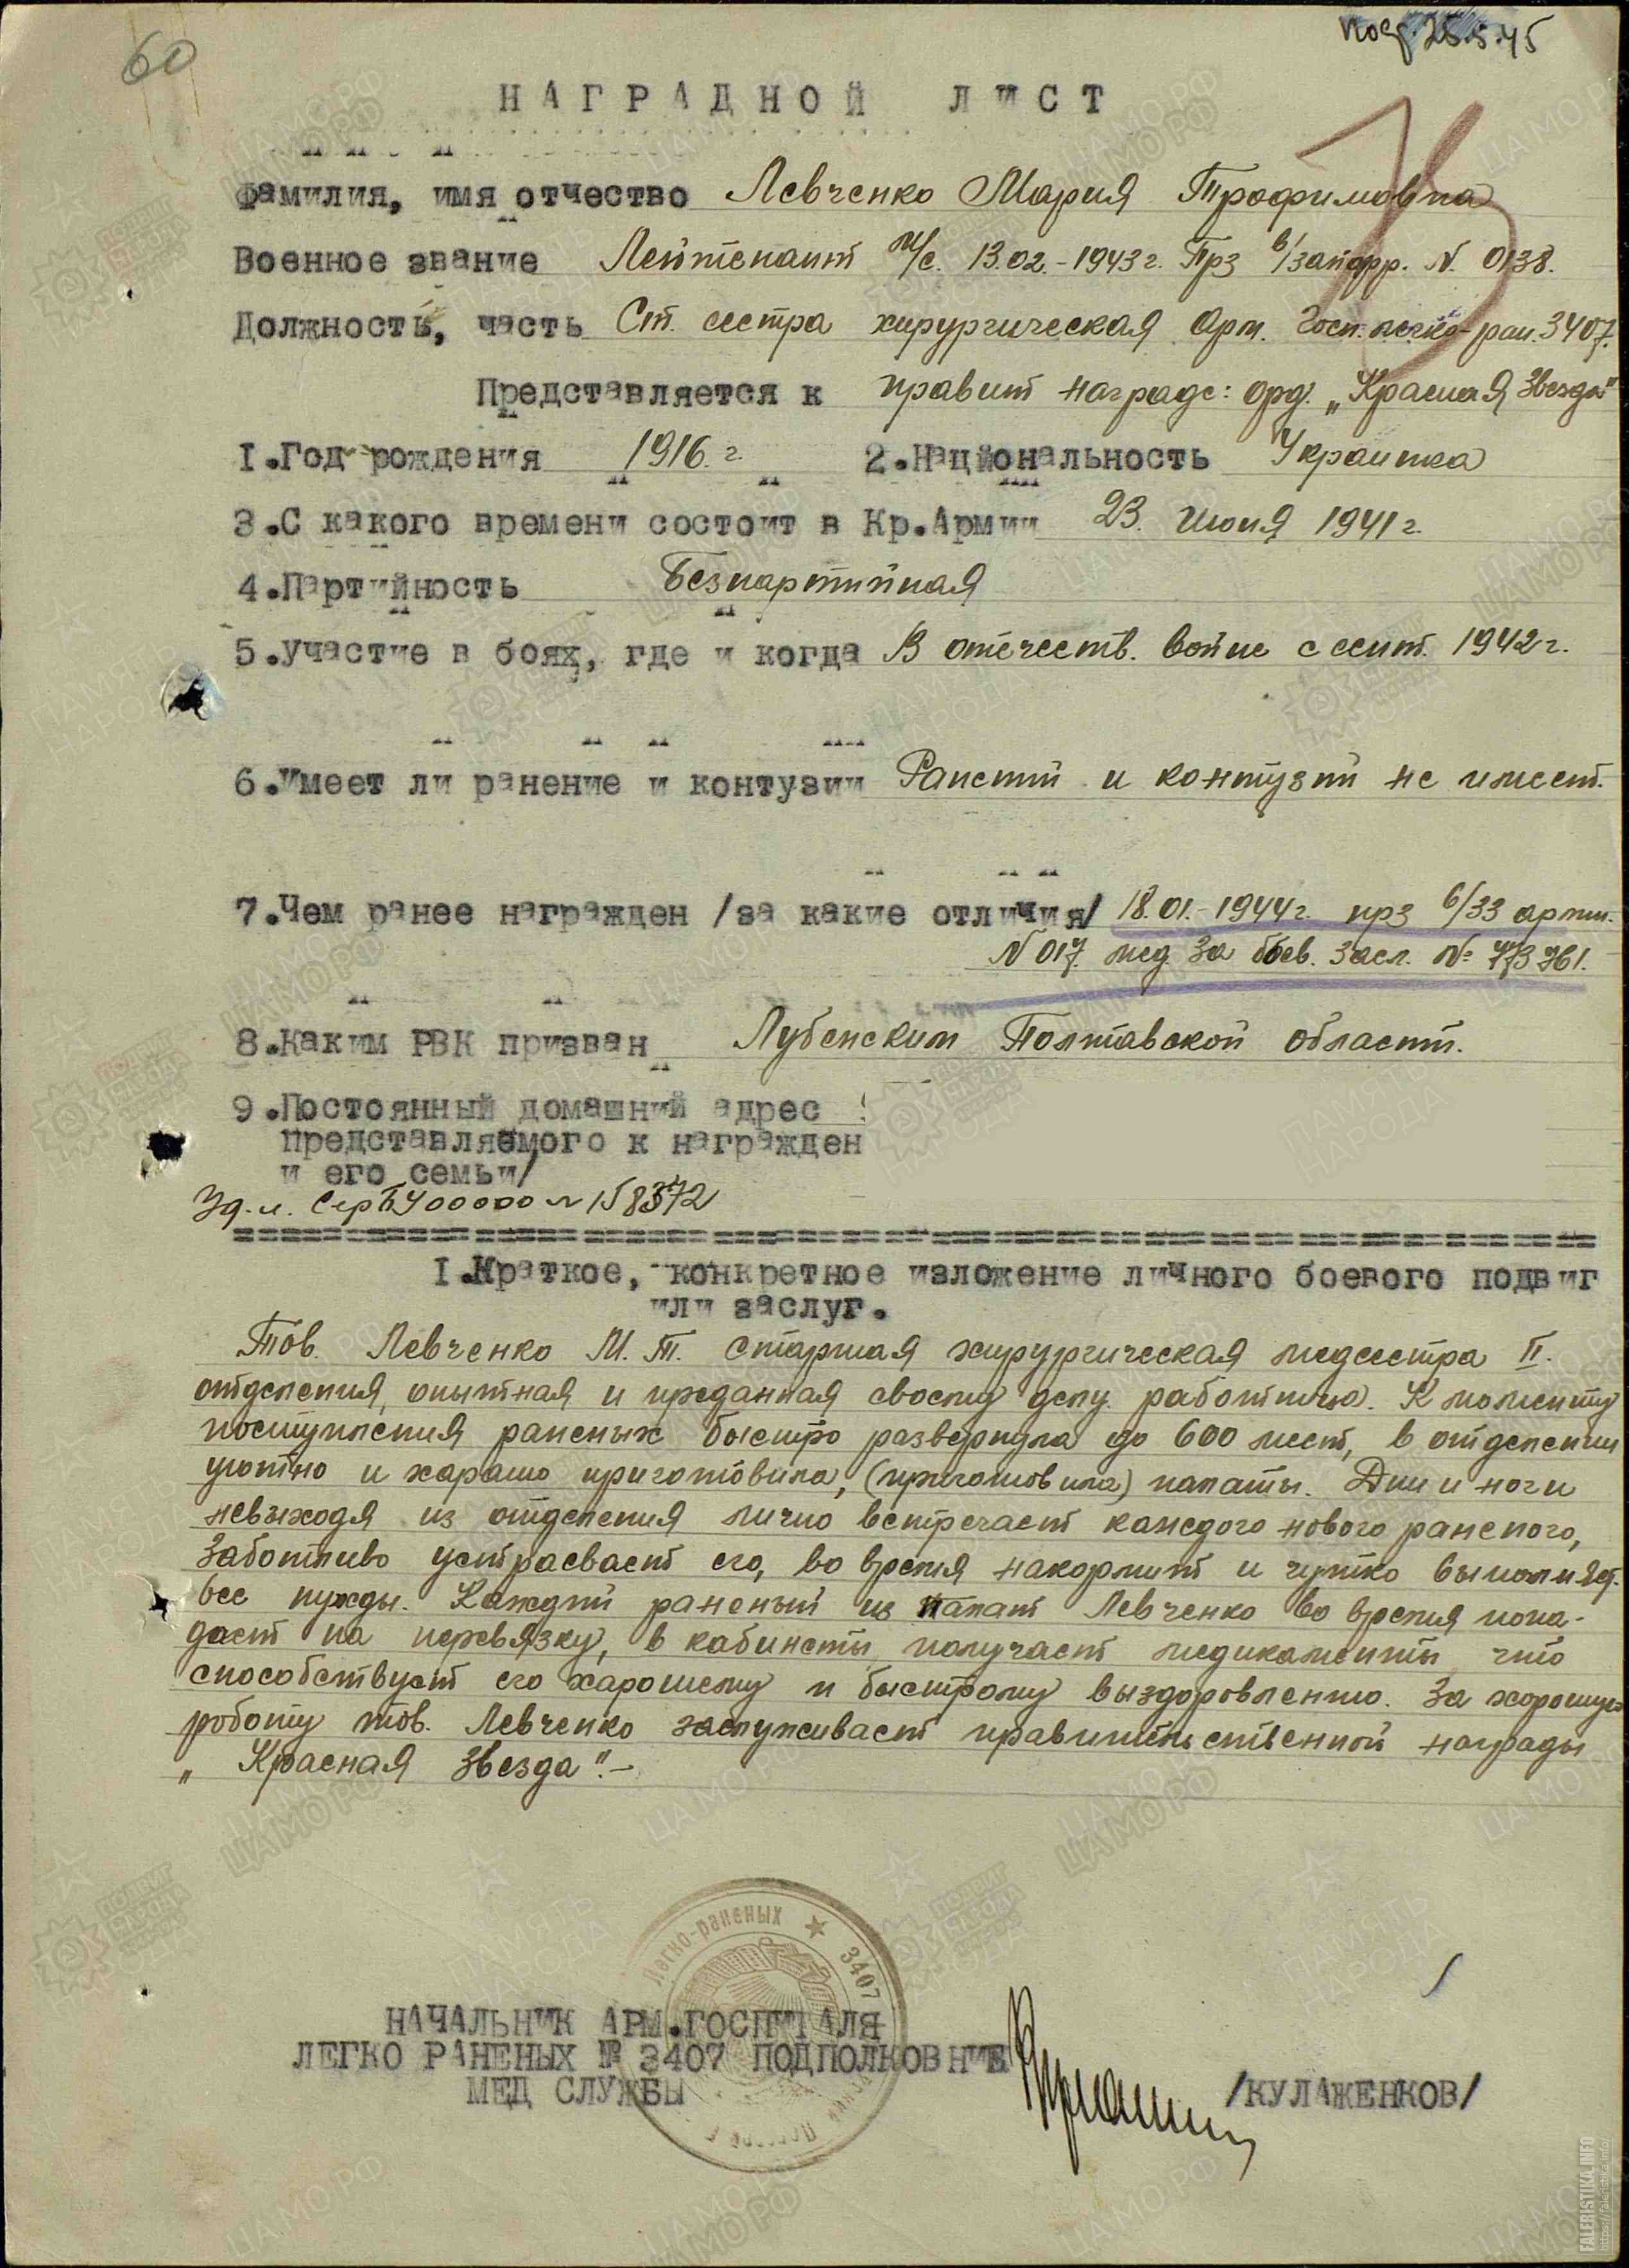 60
25.5.45
НАГРАДНОЙ ЛИСТ
Фамилия, имя отчество Левченко Мария Трофимовна
Военное звание Лейтенант м/с. 13.02.-1943г. Прз в/ N. 0138.
Должность, часть Ст. сестра хирургическая Арм. Госп. легко-ран. 3407.
Представляется к правит награде: орд. „Красная Звезда"
1.Год рождения 1916.г. 2.Национальность Украинка
3.С какого времени состоит в Кр.Армии 23. Июня 1941г.
4.Партийность Безпартийная
5.Участие в боях, где и когда В отечеств. войне с сент. 1942г.
6.Имеет ли ранение и контузии Ранений и контузий не имеет.
7.Чем ранее награжден /за какие отличия/ 18.01.-1944г. прз в/33 арми.
N 017. мед. За боев. засл. №
8.Каким РВК призван Лубенским Полтавской области.
9.Постоянный домашний адрес
представляемого к награжден
и его семьи/
1.Краткое, конкретное изложение личного боевого подвиг
или заслуг.
Тов. Левченко М.Т. старшая хирургическая медсестра II.
отделения, опытная и преданная своему делу работница. К моменту
поступления раненых быстро развернула до 600 мест, в отделении
уютно и харашо приготовила, (приготовила) палаты. Дни и ночи
невыходя из отделения лично встречает каждого нового раненого,
Заботливо устраевает его, во время накормит и чутко выполняет.
все нужды. Каждый раненый из палат Левченко во время попа-
дает на перевязку, в кабинеты, получает медикаменты, что
способствует его харошему и быстрому выздоровлению. За хорошую
роботу тов. Левченко заслуживает правительственной награды
„ Красная звезда".-
Легко-раненых ★ 3407
НАЧАЛЬНИК АРМ.ГОСПИТАЛЯ
ЛЕГКО РАНЕНЫХ № 3407 ПОДПОЛКОВНИК
МЕД СЛУЖБЫ
/КУЛАЖЕНКОВ/
FALERISTIKA.INFO
https://faleristika.info/
ЦАМО РФ
ПОДВИГ НАРОДА
ПАМЯТЬ НАРОДА